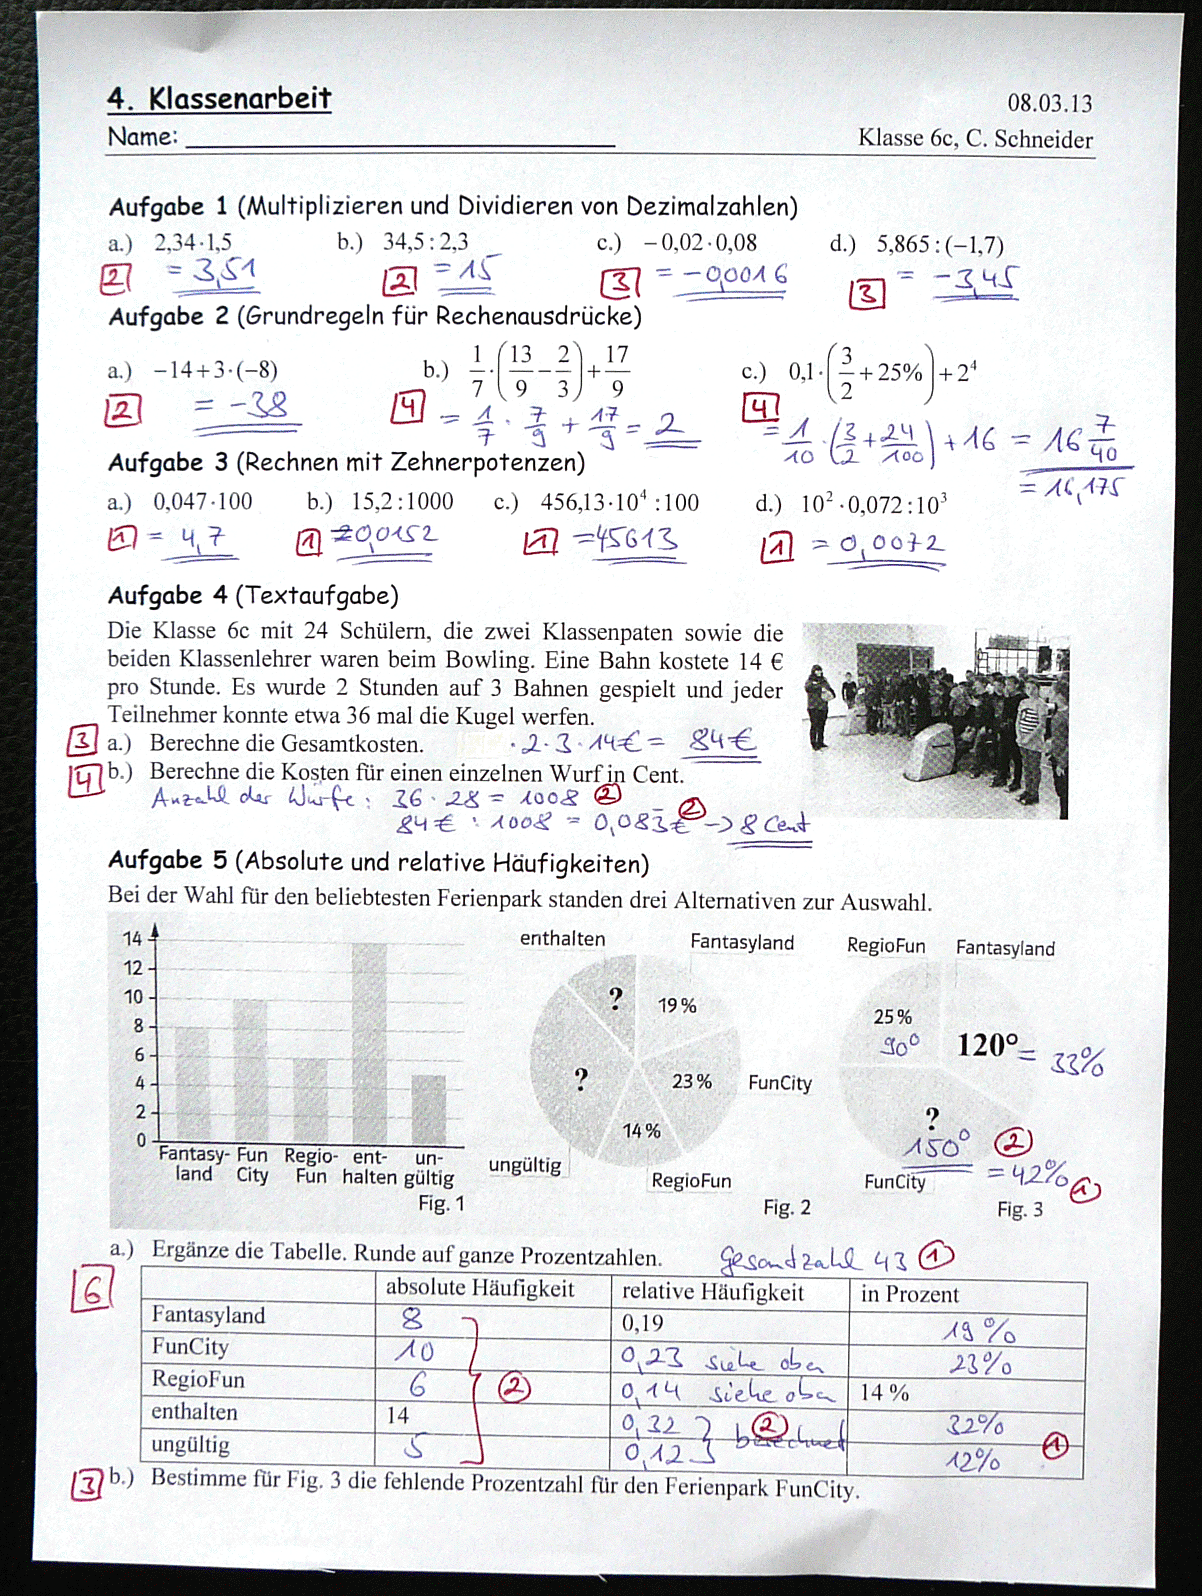 4. Klassenarbeit 08.03.13
Name: Klasse 6c, C. Schneider
Aufgabe 1 (Multiplizieren und Dividieren von Dezimalzahlen)
a.) 2,34·1,5 b.) 34,5:2,3 c.) −0,02·0,08 d.) 5,865:(−1,7)
2 = 3,51 2 = 15 3 = −0,0016 3 = −3,45
Aufgabe 2 (Grundregeln für Rechenausdrücke)
a.) −14+3·(−8) b.) 1/7·(13/9−2/3)+17/9 c.) 0,1·(3/2+25%)+2⁴
2 = −38 4 = 1/7 · 7/9 + 17/9 = 2 4 = 1/10 · (3/2 + 24/100) + 16 = 16 7/40
= 16,175
Aufgabe 3 (Rechnen mit Zehnerpotenzen)
a.) 0,047·100 b.) 15,2:1000 c.) 456,13·10⁴:100 d.) 10²·0,072:10³
1 = 4,7 1 = 0,0152 1 = 45613 1 = 0,0072
Aufgabe 4 (Textaufgabe)
Die Klasse 6c mit 24 Schülern, die zwei Klassenpaten sowie die
beiden Klassenlehrer waren beim Bowling. Eine Bahn kostete 14 €
pro Stunde. Es wurde 2 Stunden auf 3 Bahnen gespielt und jeder
Teilnehmer konnte etwa 36 mal die Kugel werfen.
3 a.) Berechne die Gesamtkosten. · 2 · 3 · 14€ = 84€
4 b.) Berechne die Kosten für einen einzelnen Wurf in Cent.
Anzahl der Würfe: 36 · 28 = 1008 2
84€ : 1008 = 0,083€ 2 → 8 Cent
Aufgabe 5 (Absolute und relative Häufigkeiten)
Bei der Wahl für den beliebtesten Ferienpark standen drei Alternativen zur Auswahl.
14
12
10
8
6
4
2
0
Fantasy- Fun Regio- ent- un-
land City Fun halten gültig
Fig. 1
enthalten Fantasyland
? 19 %
? 23 % FunCity
14 %
ungültig RegioFun
Fig. 2
RegioFun Fantasyland
25 %
90° 120° = 33%
?
150° 2
FunCity = 42% 1
Fig. 3
a.) Ergänze die Tabelle. Runde auf ganze Prozentzahlen. Gesamtzahl 43 1
6
absolute Häufigkeit relative Häufigkeit in Prozent
Fantasyland 8 0,19 19%
FunCity 10 0,23 siehe oben 23%
RegioFun 6 2 0,14 siehe oben 14 %
enthalten 14 0,32 2 berechnet 32%
ungültig 5 0,12 12% 1
3 b.) Bestimme für Fig. 3 die fehlende Prozentzahl für den Ferienpark FunCity.